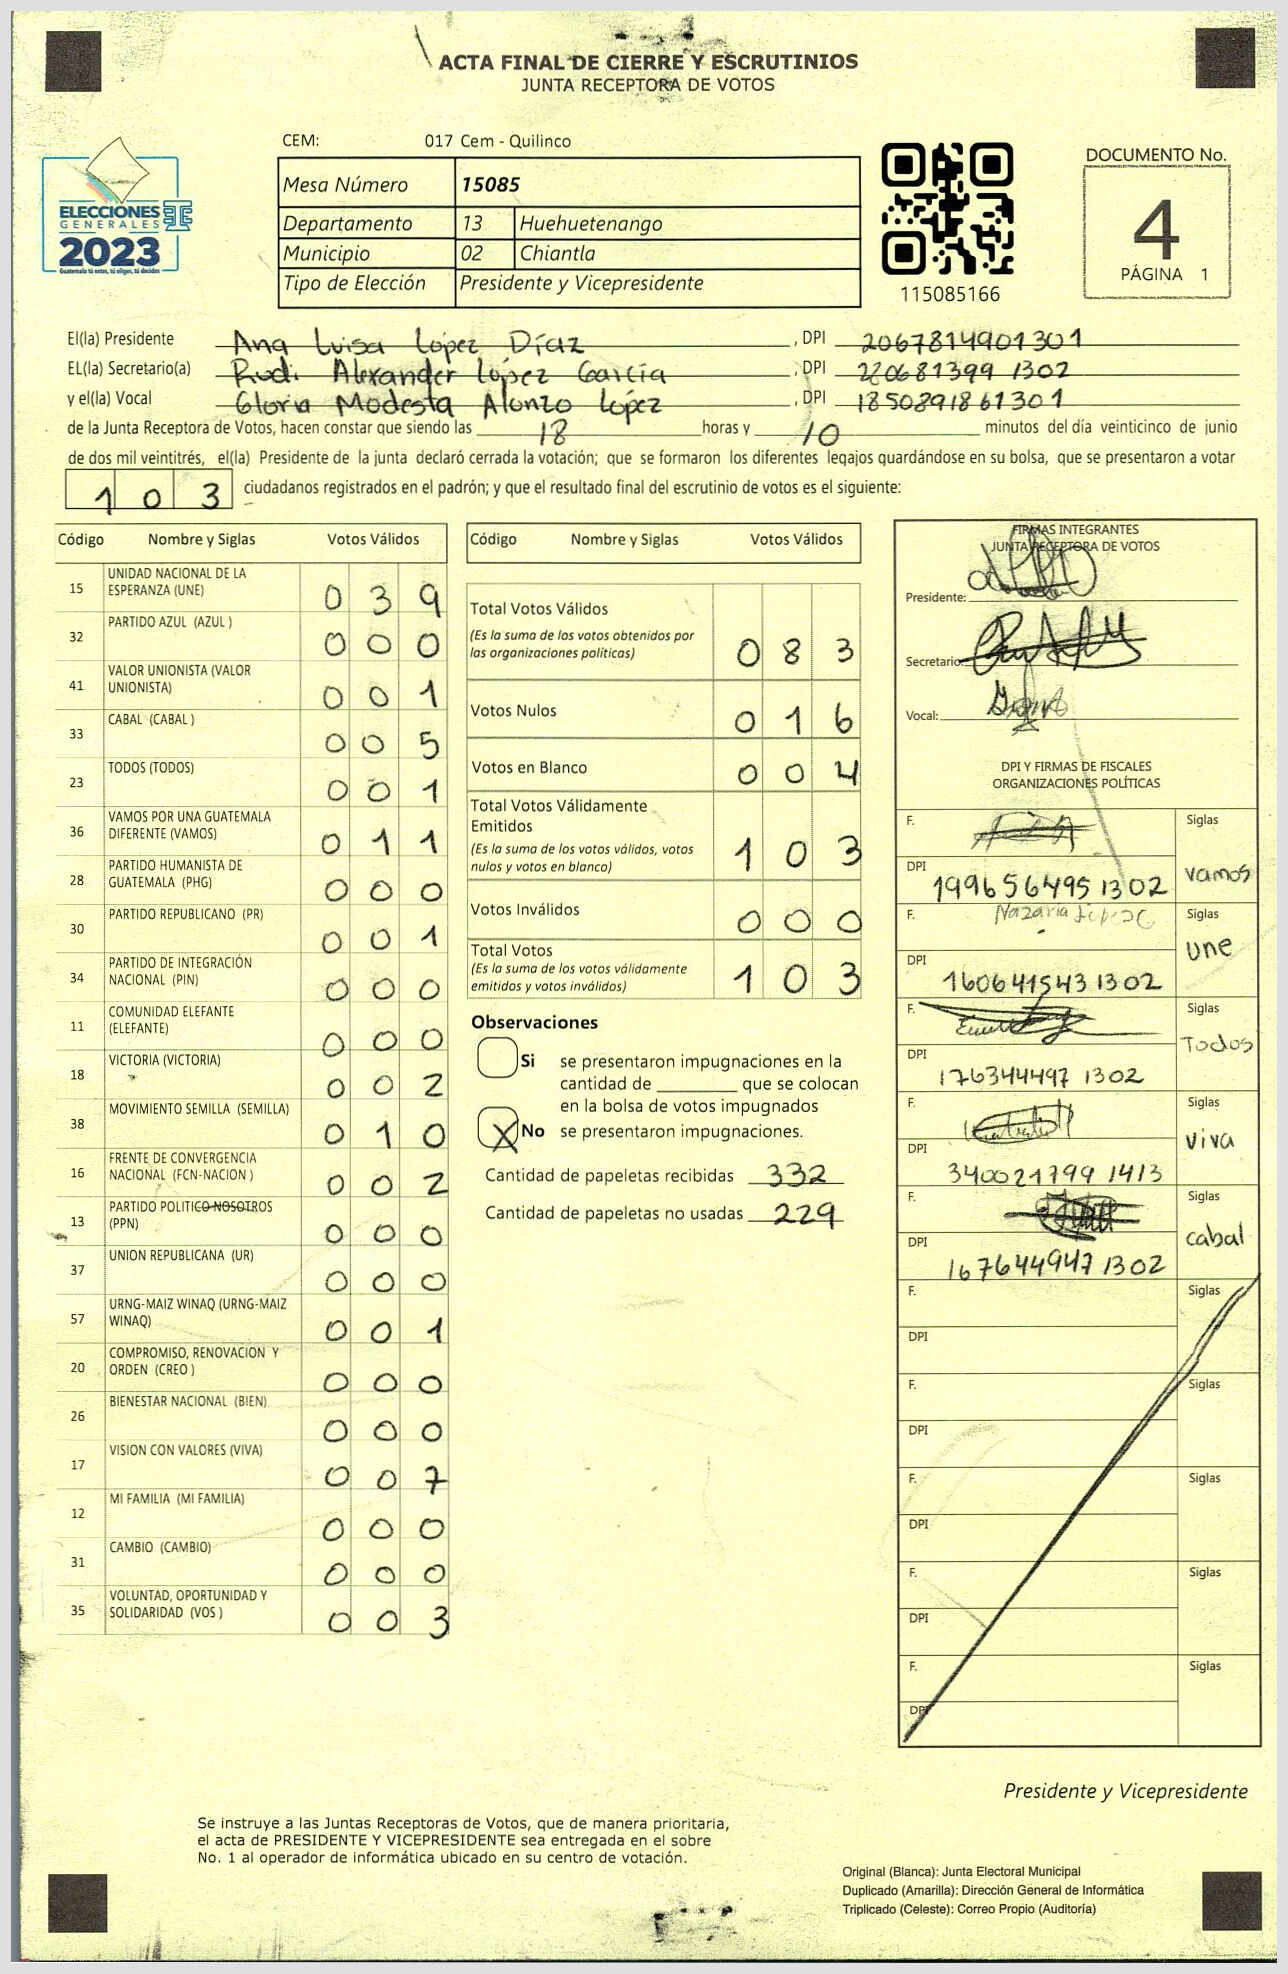 ACTA FINAL DE CIERRE Y ESCRUTINIOS
JUNTA RECEPTORA DE VOTOS
CEM: 017 Cem - Quilinco
Mesa Número 15085
Departamento 13 Huehuetenango
Municipio 02 Chiantla
Tipo de Elección Presidente y Vicepresidente
ELECCIONES
GENERALES
2023
Guatemala tú votas, tú eliges, tú decides
115085166
DOCUMENTO No.
4
PÁGINA 1
El(la) Presidente Ana Luisa López Díaz , DPI 2067814901301
EL(la) Secretario(a) Rudi Alexander López García , DPI 220681399 1302
y el(la) Vocal Gloria Modesta Alonzo López , DPI 1850891861301
de la Junta Receptora de Votos, hacen constar que siendo las 18 horas y 10 minutos del día veinticinco de junio
de dos mil veintitrés, el(la) Presidente de la junta declaró cerrada la votación; que se formaron los diferentes legajos guardándose en su bolsa, que se presentaron a votar
103 ciudadanos registrados en el padrón; y que el resultado final del escrutinio de votos es el siguiente:
Código Nombre y Siglas Votos Válidos
15 UNIDAD NACIONAL DE LA
ESPERANZA (UNE) 0 3 9
32 PARTIDO AZUL (AZUL ) 0 0 0
41 VALOR UNIONISTA (VALOR
UNIONISTA) 0 0 1
33 CABAL (CABAL ) 0 0 5
23 TODOS (TODOS) 0 0 1
36 VAMOS POR UNA GUATEMALA
DIFERENTE (VAMOS) 0 1 1
28 PARTIDO HUMANISTA DE
GUATEMALA (PHG) 0 0 0
30 PARTIDO REPUBLICANO (PR) 0 0 1
34 PARTIDO DE INTEGRACIÓN
NACIONAL (PIN) 0 0 0
11 COMUNIDAD ELEFANTE
(ELEFANTE) 0 0 0
18 VICTORIA (VICTORIA) 0 0 2
38 MOVIMIENTO SEMILLA (SEMILLA) 0 1 0
16 FRENTE DE CONVERGENCIA
NACIONAL (FCN-NACION ) 0 0 2
13 PARTIDO POLITICO NOSOTROS
(PPN) 0 0 0
37 UNION REPUBLICANA (UR) 0 0 0
57 URNG-MAIZ WINAQ (URNG-MAIZ
WINAQ) 0 0 1
20 COMPROMISO, RENOVACION Y
ORDEN (CREO ) 0 0 0
26 BIENESTAR NACIONAL (BIEN) 0 0 0
17 VISION CON VALORES (VIVA) 0 0 7
12 MI FAMILIA (MI FAMILIA) 0 0 0
31 CAMBIO (CAMBIO) 0 0 0
35 VOLUNTAD, OPORTUNIDAD Y
SOLIDARIDAD (VOS ) 0 0 3
Código Nombre y Siglas Votos Válidos
Total Votos Válidos
(Es la suma de los votos obtenidos por
las organizaciones políticas) 0 8 3
Votos Nulos 0 1 6
Votos en Blanco 0 0 4
Total Votos Válidamente
Emitidos
(Es la suma de los votos válidos, votos
nulos y votos en blanco) 1 0 3
Votos Inválidos 0 0 0
Total Votos
(Es la suma de los votos válidamente
emitidos y votos inválidos) 1 0 3
Observaciones
Si se presentaron impugnaciones en la
cantidad de ________ que se colocan
en la bolsa de votos impugnados
X No se presentaron impugnaciones.
Cantidad de papeletas recibidas 332
Cantidad de papeletas no usadas 229
FIRMAS INTEGRANTES
JUNTA RECEPTORA DE VOTOS
Presidente:
Secretario
Vocal:
DPI Y FIRMAS DE FISCALES
ORGANIZACIONES POLÍTICAS
F. Siglas
DPI 199656495 1302 vamos
F. Nazaria Siglas
une
DPI 160641543 1302
F. Siglas
Todos
DPI 176344497 1302
F. Siglas
viva
DPI 340021799 1413
F. Siglas
cabal
DPI 167644947 1302
F. Siglas
DPI
F. Siglas
DPI
F. Siglas
DPI
F. Siglas
DPI
F. Siglas
DPI
Presidente y Vicepresidente
Se instruye a las Juntas Receptoras de Votos, que de manera prioritaria,
el acta de PRESIDENTE Y VICEPRESIDENTE sea entregada en el sobre
No. 1 al operador de informática ubicado en su centro de votación.
Original (Blanca): Junta Electoral Municipal
Duplicado (Amarilla): Dirección General de Informática
Triplicado (Celeste): Correo Propio (Auditoría)